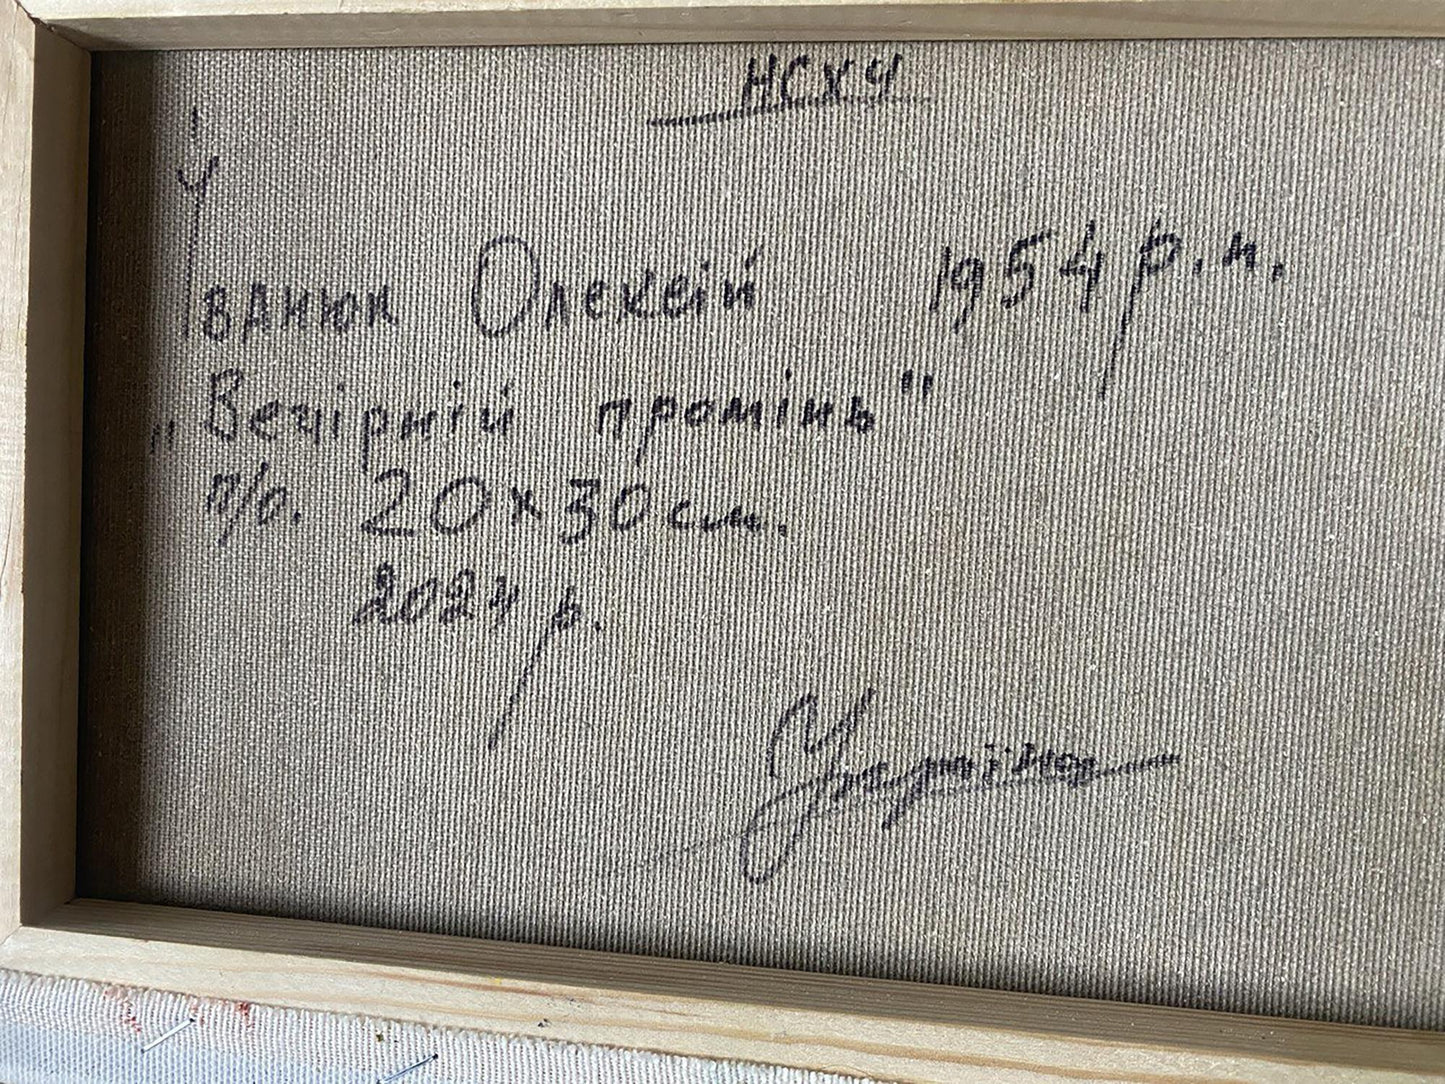 НСХУ
Іванюк Олексій 1954 р.н.
„Вечірній промінь"
п/о. 20×30см.
2024 р.
Україна